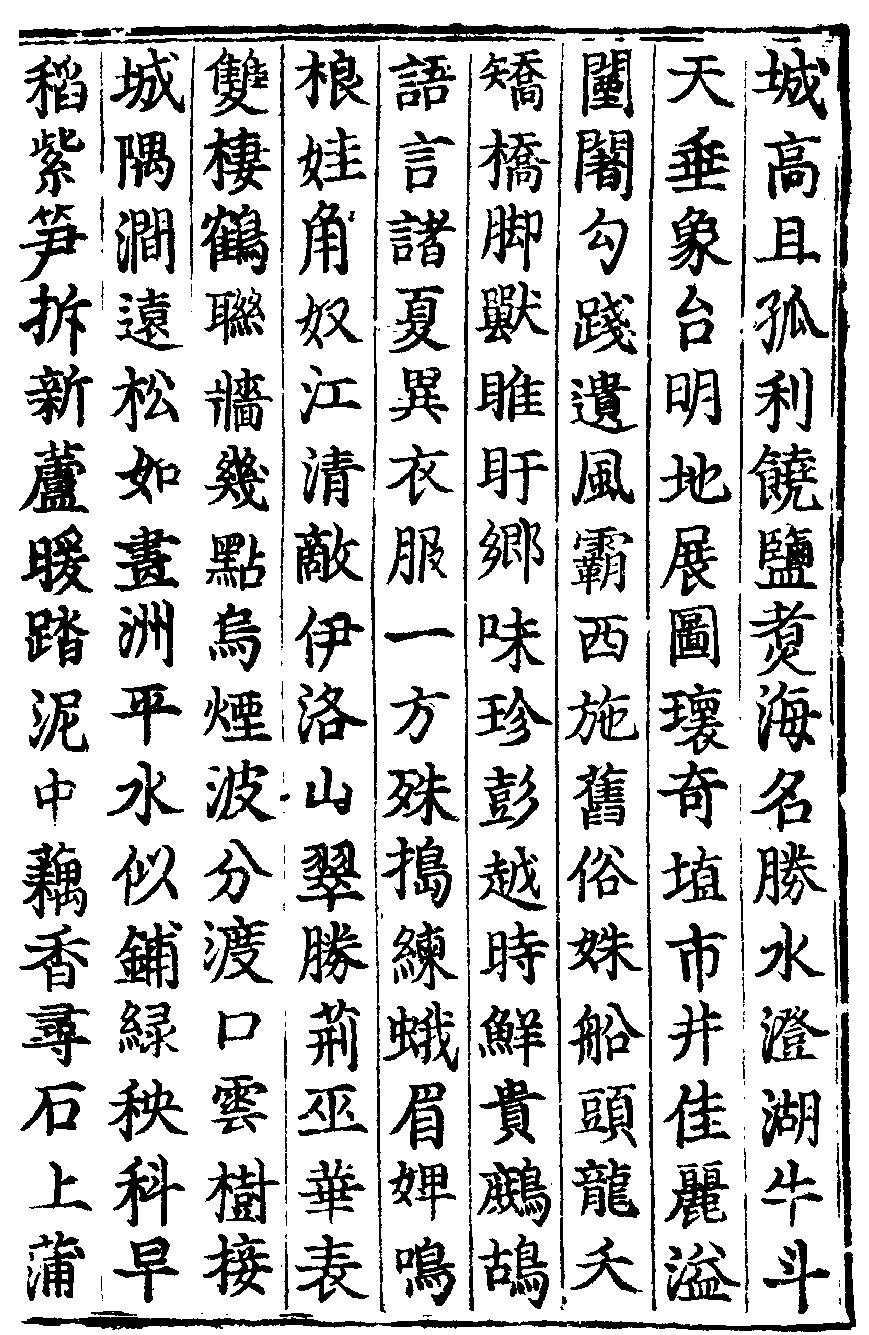 城高且孤利饒鹽煑海名勝水澄湖牛斗
天垂象台明地展圖瓌奇埴市井佳麗溢
闉闍勾踐遺風霸西施舊俗姝船頭龍夭
矯橋脚獸睢盱鄉味珍彭越時鮮貴鷓鴣
語言諸夏異衣服一方殊搗練蛾眉婢鳴
桹娃角奴江清敵伊洛山翠勝荊巫華表
雙棲鶴聯牆幾點烏煙波分渡口雲樹接
城隅澗遠松如畫洲平水似鋪綠秧科早
稻紫笋拆新蘆暖踏泥中藕香尋石上蒲